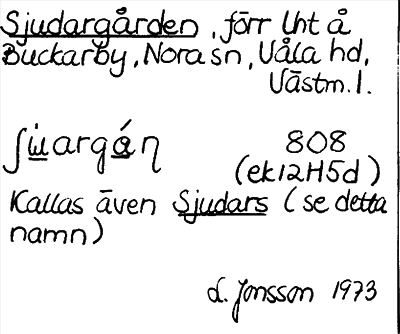 Sjudargården, förr lht å
Buckarby, Nora sn, Våla hd,
Västm. l.
808
(ek12H5d)
Kallas även Sjudars (se detta
namn)
L. Jonsson 1973